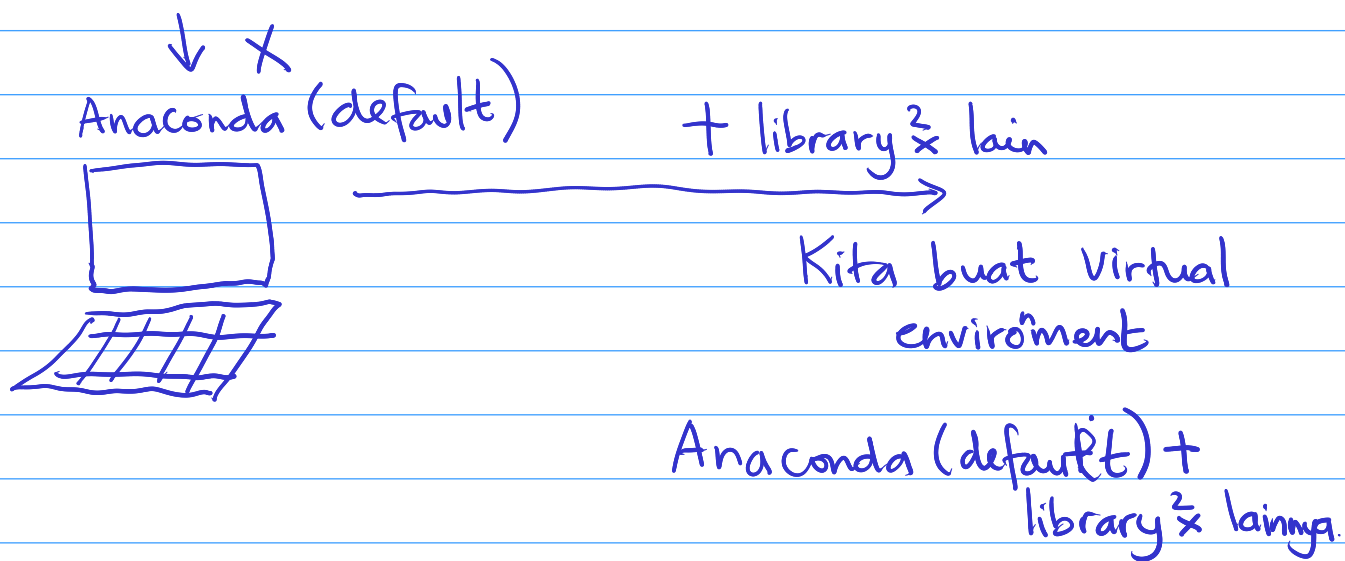 ↓ X
Anaconda (default)
+ library²x lain
Kita buat virtual
environment
Anaconda (default) +
library²x lainnya.